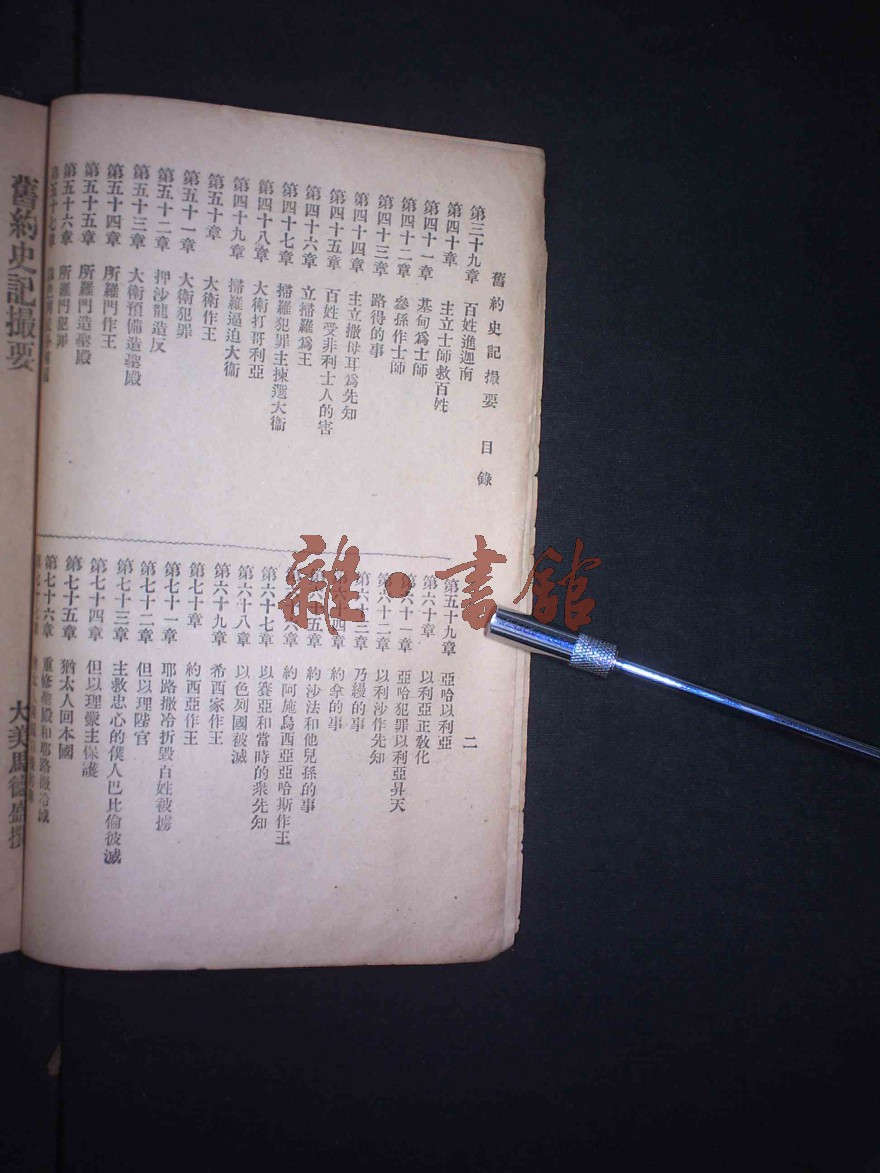 舊約史記撮要 目錄 二
第三十九章 百姓進迦南
第四十章 主立士師救百姓
第四十一章 基甸爲士師
第四十二章 參孫作士師
第四十三章 路得的事
第四十四章 主立撒母耳爲先知
第四十五章 百姓受非利士人的害
第四十六章 立掃羅爲王
第四十七章 掃羅犯罪主揀選大衞
第四十八章 大衞打哥利亞
第四十九章 掃羅逼迫大衞
第五十章 大衞作王
第五十一章 大衞犯罪
第五十二章 押沙龍造反
第五十三章 大衞預備造聖殿
第五十四章 所羅門作王
第五十五章 所羅門造聖殿
第五十六章 所羅門犯罪
第五十七章
第五十九章 亞哈以利亞
第六十章 以利亞正敎化
第六十一章 亞哈犯罪以利亞昇天
第六十二章 以利沙作先知
第六十三章 乃縵的事
第六十四章 約拿的事
第六十五章 約沙法和他兒孫的事
第六十六章 約阿施烏西亞亞哈斯作王
第六十七章 以賽亞和當時的衆先知
第六十八章 以色列國被滅
第六十九章 希西家作王
第七十章 約西亞作王
第七十一章 耶路撒冷折毀百姓被擄
第七十二章 但以理陞官
第七十三章 主救忠心的僕人巴比倫被滅
第七十四章 但以理蒙主保護
第七十五章 猶太人回本國
第七十六章 重修聖殿和耶路撒冷城
舊約史記撮要
大美馬德盛撰
雜·書館